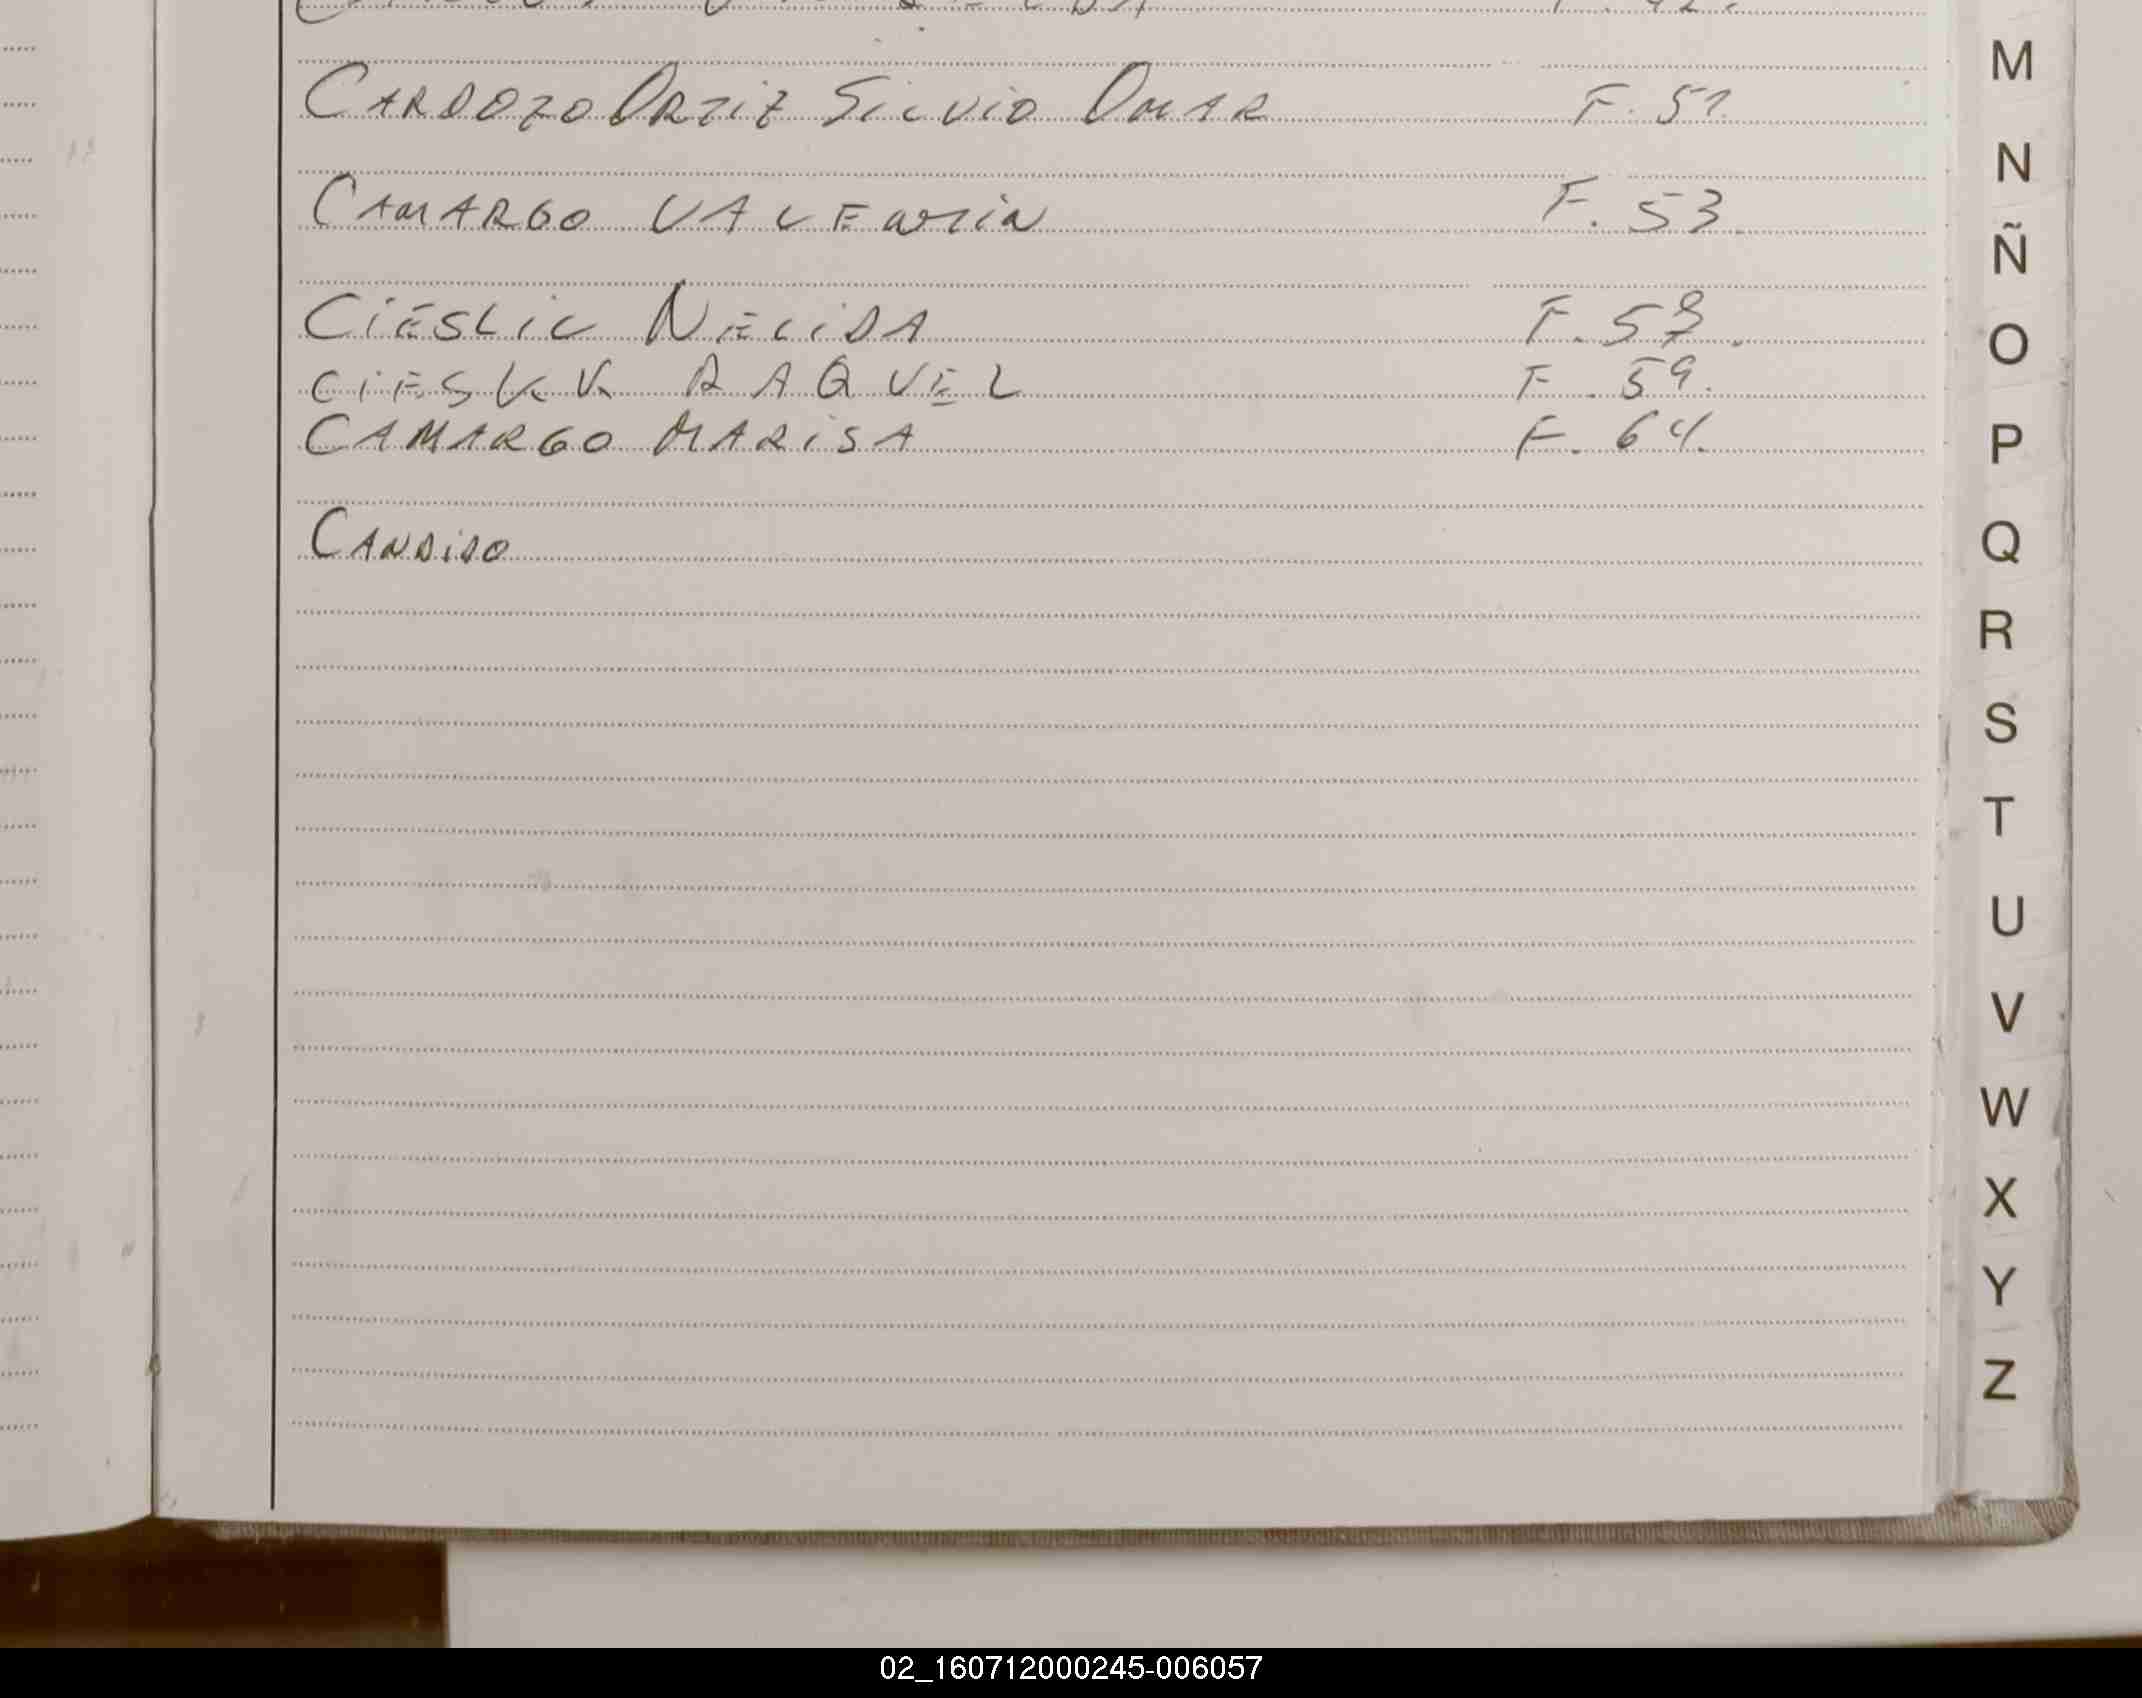 CARDOZO ORTIZ SILVIO OMAR F. 51.
CAMARGO VALENTIN F. 53.
CIESLIC NELIDA F. 58.
CIESKK RAQUEL F. 59.
CAMARGO MARISA F. 64.
CANDIDO
M
N
Ñ
O
P
Q
R
S
T
U
V
W
X
Y
Z
02_160712000245-006057